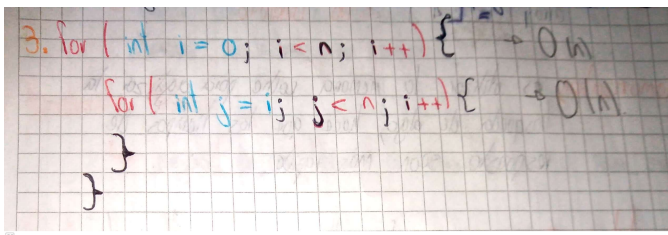 3. for ( int i = 0; i < n; i++) { → O(n)
for ( int j = i; j < n; i++) { → O(n)
}
}